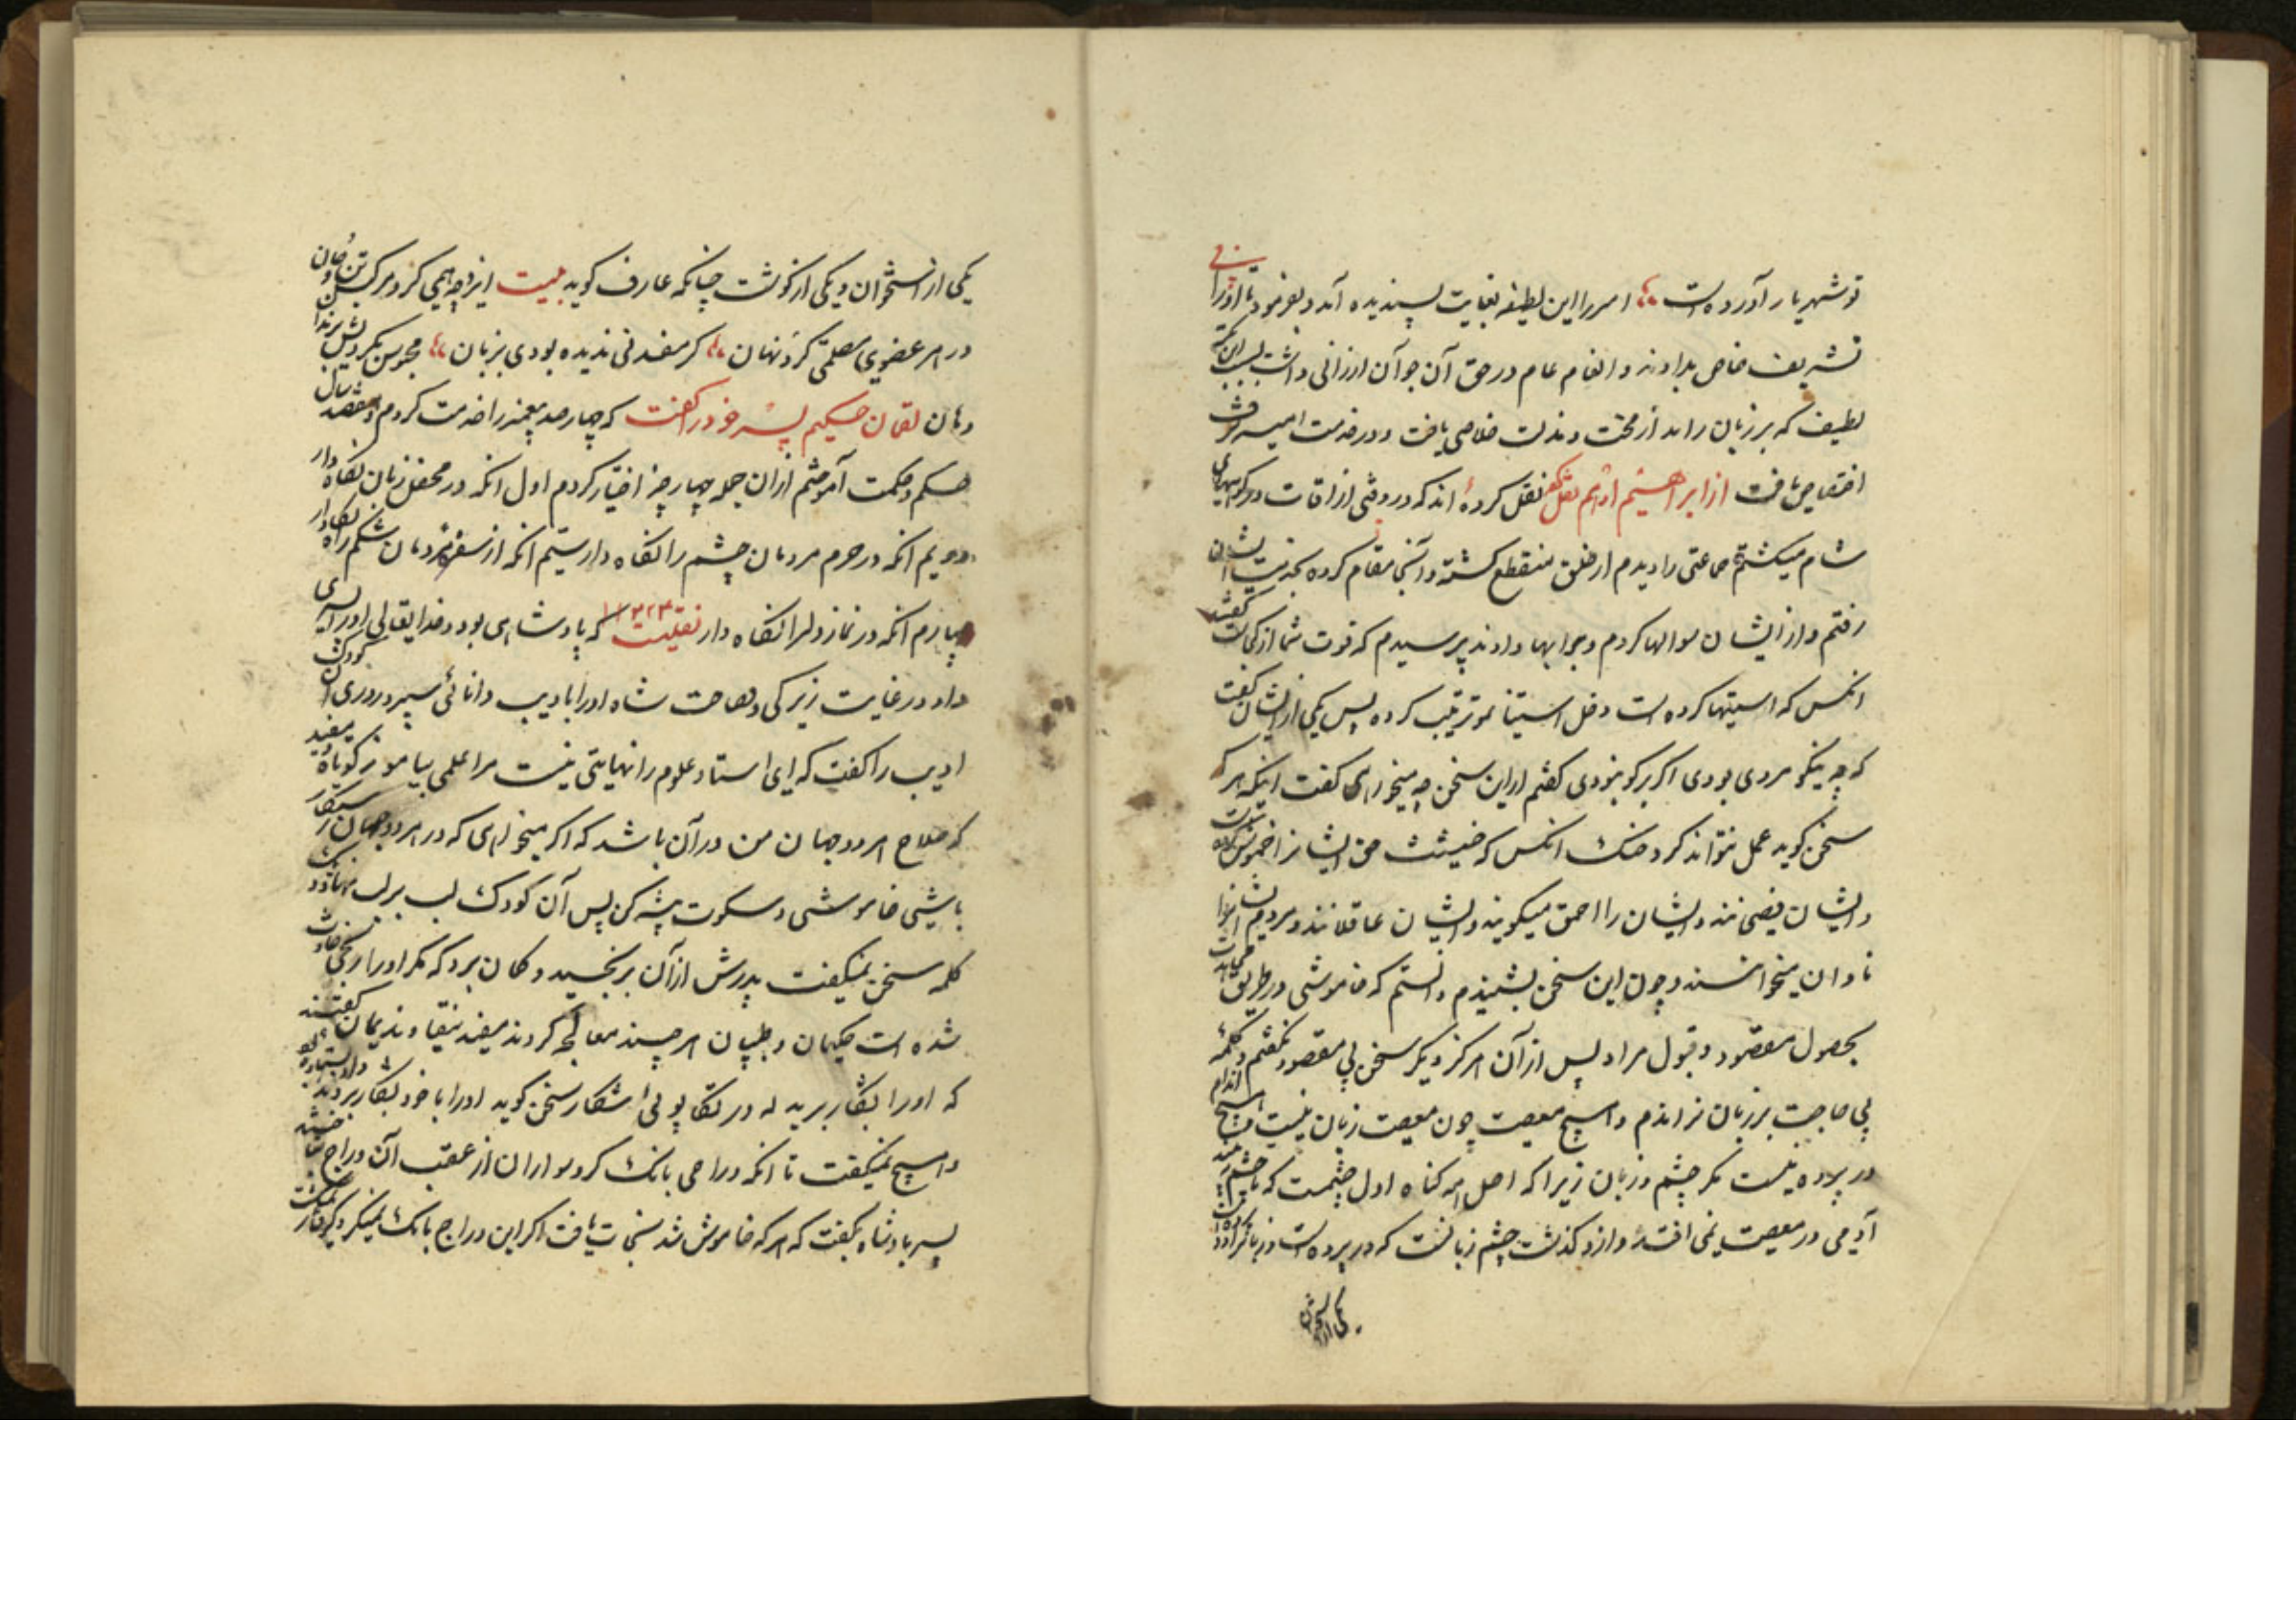 تو شهریار آورده است امیر را این لطیفه بغایت پسندیده آمد و بفرمود تا او را
تشریف خاص بدادند و انعام عام در حق آن جوان ارزانی داشت بسبب این نکته
لطیف که بر زبان راند از محنت و مذلت خلاصی یافت و در خدمت امیر
اختصاص یافت از ابراهیم ادهم نقل کرده اند که در وقتی از اوقات در
شام میکشتم جماعتی را دیدم از خلق منقطع کشته و آنجا مقام کرده بخدمت ایشان
رفتم و از ایشان سوالها کردم و جوابها دادند پرسیدم که قوت شما از کجاست گفتند
انکس که اسیتها کرده است دخل استیا نموترتیب کرده پس یکی از ایشان گفت
که چه نیکو مردی بودی اگر پرکو نبودی کفتم از این سخن چه میخواهی کفت اینکه هر که
سخن کوید عمل نتواند کرد انکس که
و ایشان را احمق میکویند و ایشان عاقلانند و مردم ایشانرا
نادان میخوانند و چون این سخن بشنیدم دانستم که خاموشی در طریق
بحصول مقصود و قبول مراد پس از آن هرکز دیکر سخن بی مقصود نکفتم و کلمه
بی حاجت بر زبان نراندم و هیچ معصیت چون معصیت زبان نیست و هیچ اندام
در پرده نیست مکر چشم و زبان زیرا که اصل همه کناه اول چشمست که تا چشم
آدمی در معصیت نمی افتد و ازو کذشت چشم زبانست که در پرده است و زبانرا دو
یکی از استخوان
یکی از استخوان و یکی از کوشت چنانکه عارف کوید بیت ایزد چه همی کرد مرکب تن و جان
در هر عضوی مصلحتی کرد نهان کر مفسدتی ندیده بودی بزبان محبوس نکردیش بزندان
دهان لقمان حکیم پسر خود را کفت که چهار صد پیغمبر را خدمت کردم و هفتصد سال
حکم و حکمت آموختم از ان جمله چهار چیز اختیار کردم اول انکه در محفل زبان نکاه دار
دویم انکه در حرم مردمان چشم را نکاه دار سیم انکه از سفره مردمان شکم را نکاه دار
چهارم انکه در نماز دلرا نکاه دار نقلیست که پادشاهی بود و خدایتعالی او را پسری
داد در غایت زیرکی و فصاحت شاه او را با ادیب دانائی سپرد روزی آن کودک
ادیب را کفت که ای استاد علوم را نهایتی نیست مرا علمی بیاموز کوتاه و مفید
که صلاح هر دو جهان من در آن باشد که اکر میخواهی که در هر دو جهان رستکار
باشی خاموشی و سکوت پیشه کن پس آن کودک لب بر لب نهاد و یک
کلمه سخن نمیکفت پدرش از آن برنجید و کمان برد که مکر او را رنجی حادث
شده است حکیمان و طبیبان هر چند معالجه کردند مفید نیفتاد ندیمان کفتند
که او را بشکار برید که در تکاپوئی شکار سخن کوید او را با خود بشکار بردند
و هیچ نمیکفت تا انکه دراجی بانک کرد سواران از عقب آن دراج
پسر پادشاه بکفت که هر که خاموش شد نجات یافت اکر این دراج بانک نمیکرد کرفتار نمیکشت